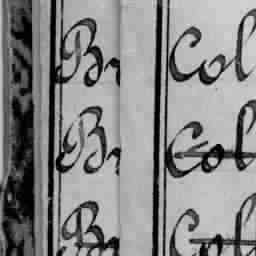 Br Col
Br Col
Br Col